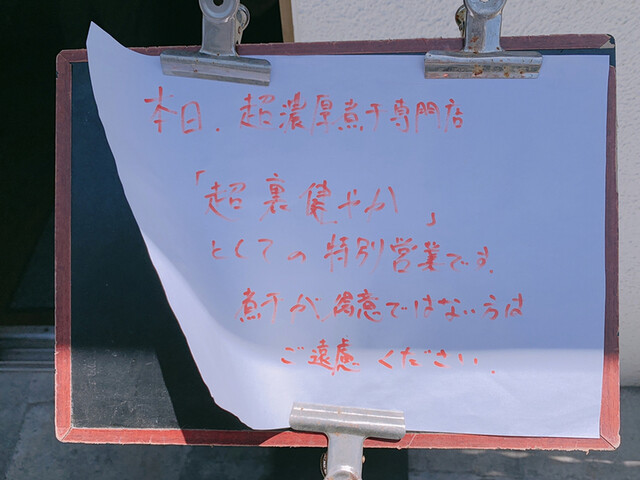 本日、超濃厚煮干専門店
「超裏健やか」
としての特別営業です。
煮干が得意ではない方は
ご遠慮ください。